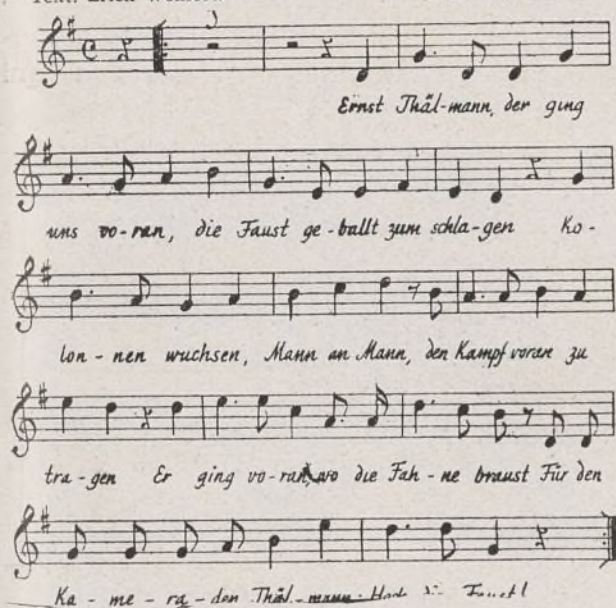 Text: Erich
Ernst Thäl-mann, der ging
uns vo-ran, die Faust ge-ballt zum schla-gen Ko-
lon-nen wuchsen, Mann an Mann, den Kampf voran zu
tra-gen Er ging vo-ran, wo die Fah-ne braust Für den
Ka-me-ra-den Thäl-mann: Hoch die Faust!